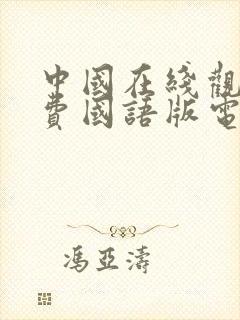 中國在綫觀
費國語版電
馮亞濤